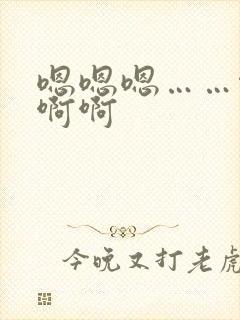 嗯嗯嗯……
啊啊
今晚又打老虎